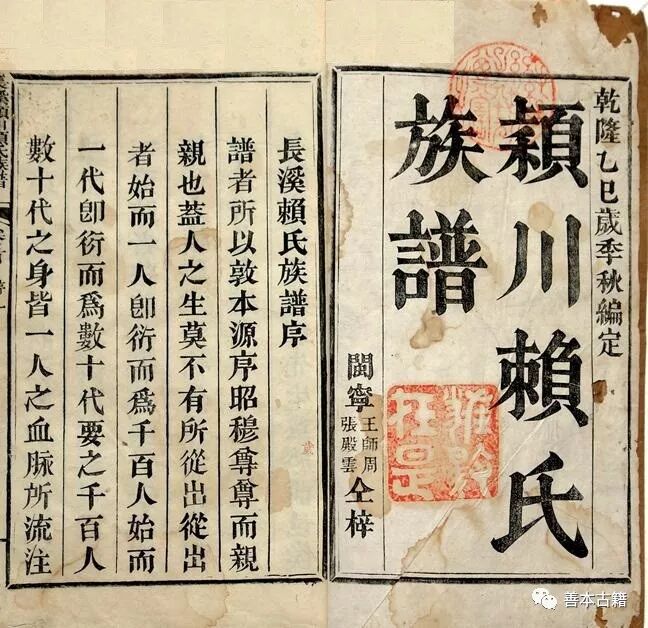 乾隆乙巳歲季秋編定
頴川賴氏
族譜
閩寧王師周張殿雲仝梓
長溪賴氏族譜序
譜者所以敦本源序昭穆尊尊而親
親也蓋人之生莫不有所從出從出
者始而一人卽衍而爲千百人始而
一代卽衍而爲數十代要之千百人
數十代之身皆一人之血脉所流注
善本古籍